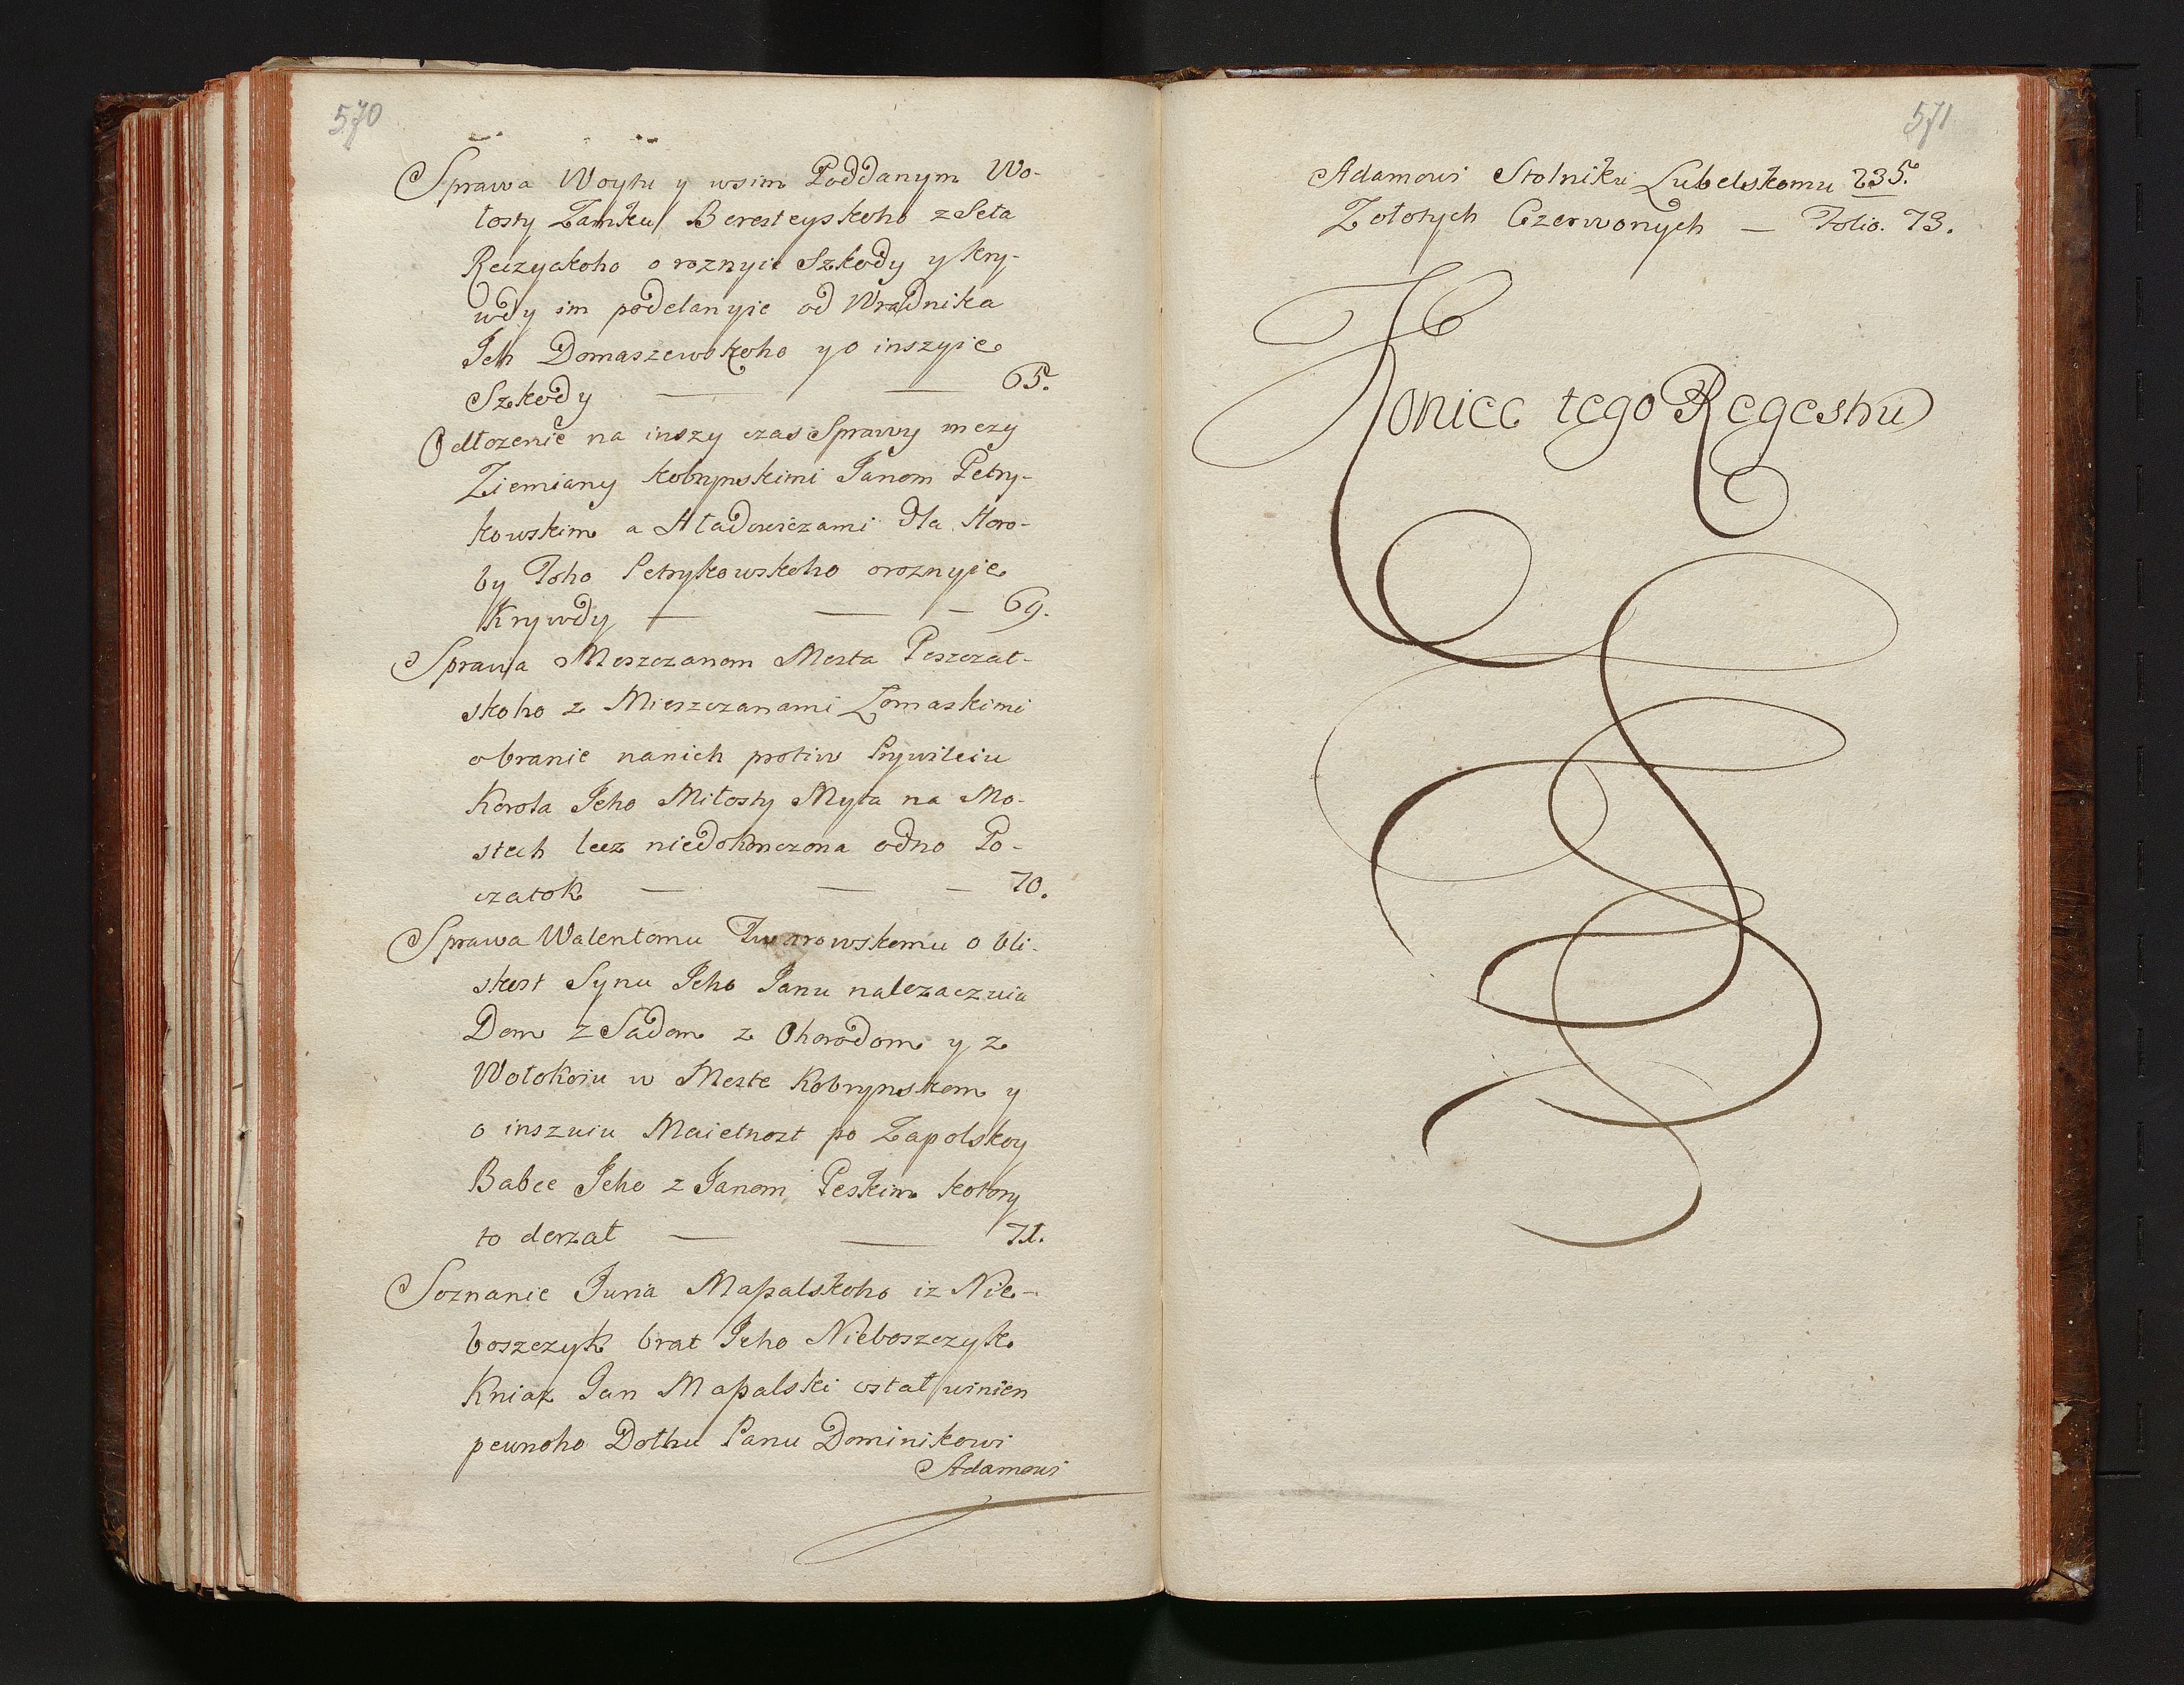 570
Sprawa Woytu y wsim Poddanym Wo-
łosty Zamku Beresteyskoho z Seła
Reczyckoho o roznyie Szkody y Kry-
wdy im podelanyie od Wradnika
Ich Domaszewskoho y o inszyie
Szkody — — 65.
Odłozenie na inszy czas Sprawy mezy
Ziemiany Kobrynskimi Janom Petry-
kowskim a Hładowiczami dla Horo-
by Toho Petrykowskoho o roznyie
Krywdy — — — 69.
Sprawa Meszczanom Mesta Peszczat-
skoho z Mieszczanami Łomaskimi
o branie na nich protiw Prywileiu
Korola Jeho Miłosty Myta na Mo-
stech lecz niedokonczona odno Po-
czatok — — — 70.
Sprawa Walentomu Twarowskomu o bli-
skost Synu Jeho Janu nalezaczuia
Dom z Sadom z Ohorodom y z
Wołokoiu w Meste Kobrynskom y
o inszuiu Maietnost po Zapolskoy
Babce Jeho z Janom Peskim kotory
to derzał — — 71.
Soznanie Juria Massalskoho iz Nie-
boszczyk brat Jeho Nieboszczyk
Kniaz Jan Massalski ostał winien
pewnoho Dołhu Panu Dominikowi
Adamowi
571
Adamowi Stolniku Lubelskomu 235.
Zołotych Czerwonych — Folio. 73.
Koniec tego Regestru